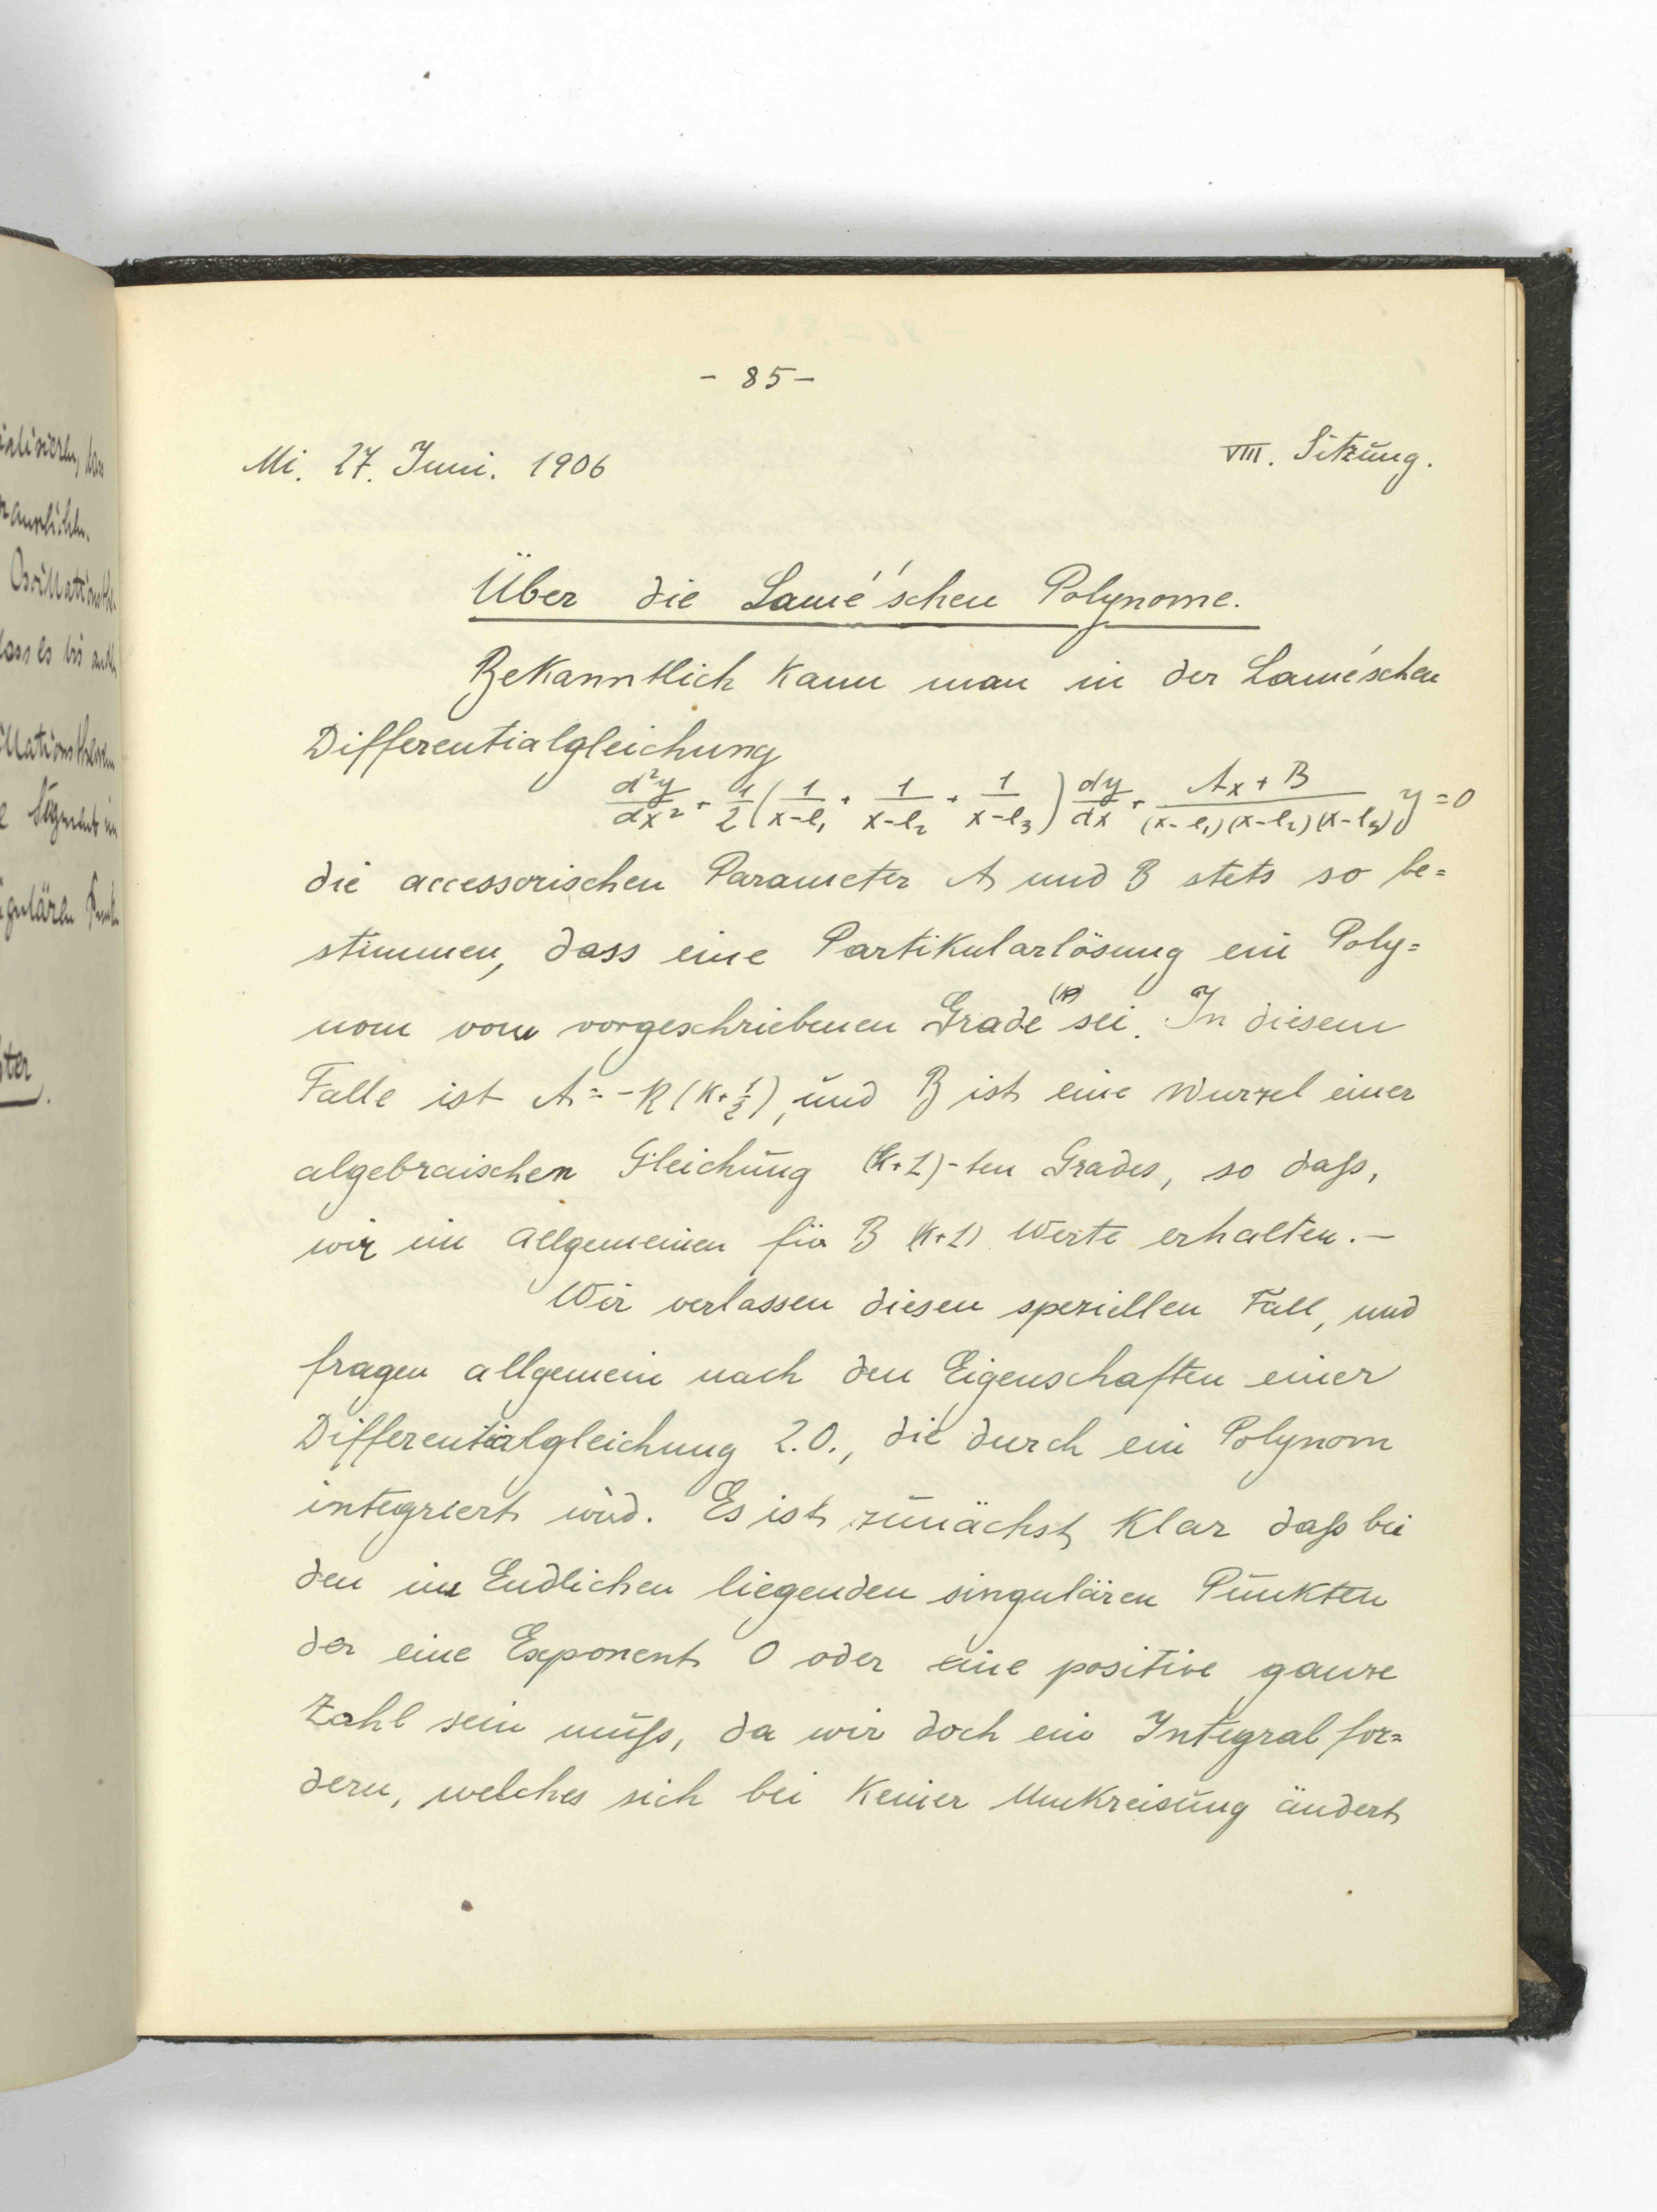 - 85 -
Mi. 27. Juni. 1906
VIII. Sitzung.
Über die Lamé'schen Polynome.
Bekanntlich kann man in der Lamé'schen
Differentialgleichung
d²y/dx² + 1/2 (1/(x-e₁) + 1/(x-e₂) + 1/(x-e₃)) dy/dx + (Ax + B)/((x-e₁)(x-e₂)(x-e₃)) y = 0
die accessorischen Parameter A und B stets so be=
stimmen, dass eine Partikularlösung ein Poly=
nom vom vorgeschriebenen Grade (k) sei. In diesem
Falle ist A = -k(k+1/2), und B ist eine Wurzel einer
algebraischen Gleichung (k+1)-ten Grades, so daß,
wir im allgemeinen für B (k+1) Werte erhalten. -
Wir verlassen diesen speziellen Fall, und
fragen allgemein nach den Eigenschaften einer
Differentialgleichung 2.O., die durch ein Polynom
integriert wird. Es ist zunächst klar daß bei
den im Endlichen liegenden singulären Punkten
der eine Exponent 0 oder eine positive ganze
Zahl sein muß, da wir doch ein Integral for=
dern, welches sich bei keiner Umkreisung ändert